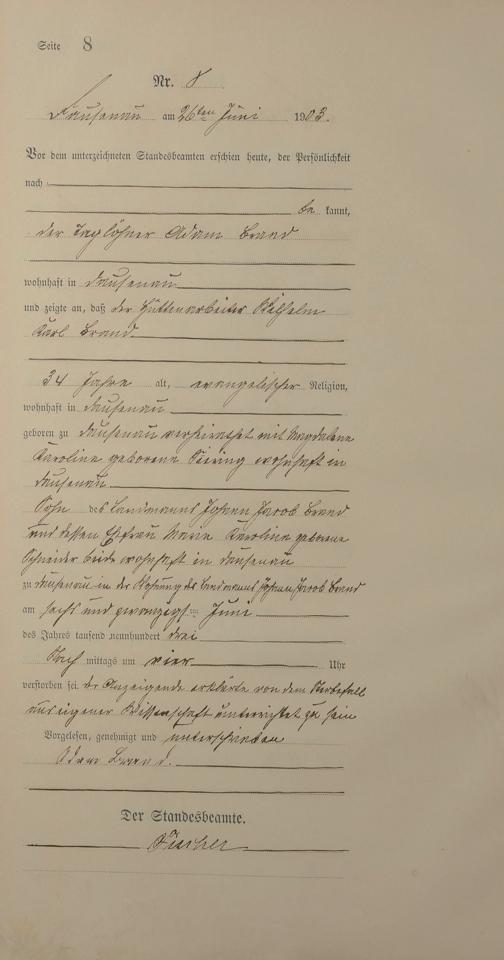 Seite 8
Nr. 8
Dausenau am 26ten Juni 1903.
Vor dem unterzeichneten Standesbeamten erschien heute, der Persönlichkeit
nach
be kannt,
der Taglöhner Adam Brand
wohnhaft in Dausenau
und zeigte an, daß der Hüttenarbeiter Wilhelm
Karl Brand
34 Jahre alt, evangelischer Religion,
wohnhaft in Dausenau
geboren zu Dausenau verheirathet mit Magdalene
Karoline geborene wohnhaft in
Dausenau
Sohn des Landmanns Johann Jacob Brand
und dessen Ehefrau Marie Karoline geborene
Schneider beide wohnhaft in Dausenau
zu Dausenau in der Wohnung des Landmanns Johann Jacob Brand
am sechs und zwanzigsten Juni
des Jahres tausend neunhundert drei
Nach mittags um vier Uhr
verstorben sei. Der Anzeigende erklärte von dem Sterbefall
aus eigener Wissenschaft unterrichtet zu sein
Vorgelesen, genehmigt und unterschrieben
Adam Brand.
Der Standesbeamte.
Fischer